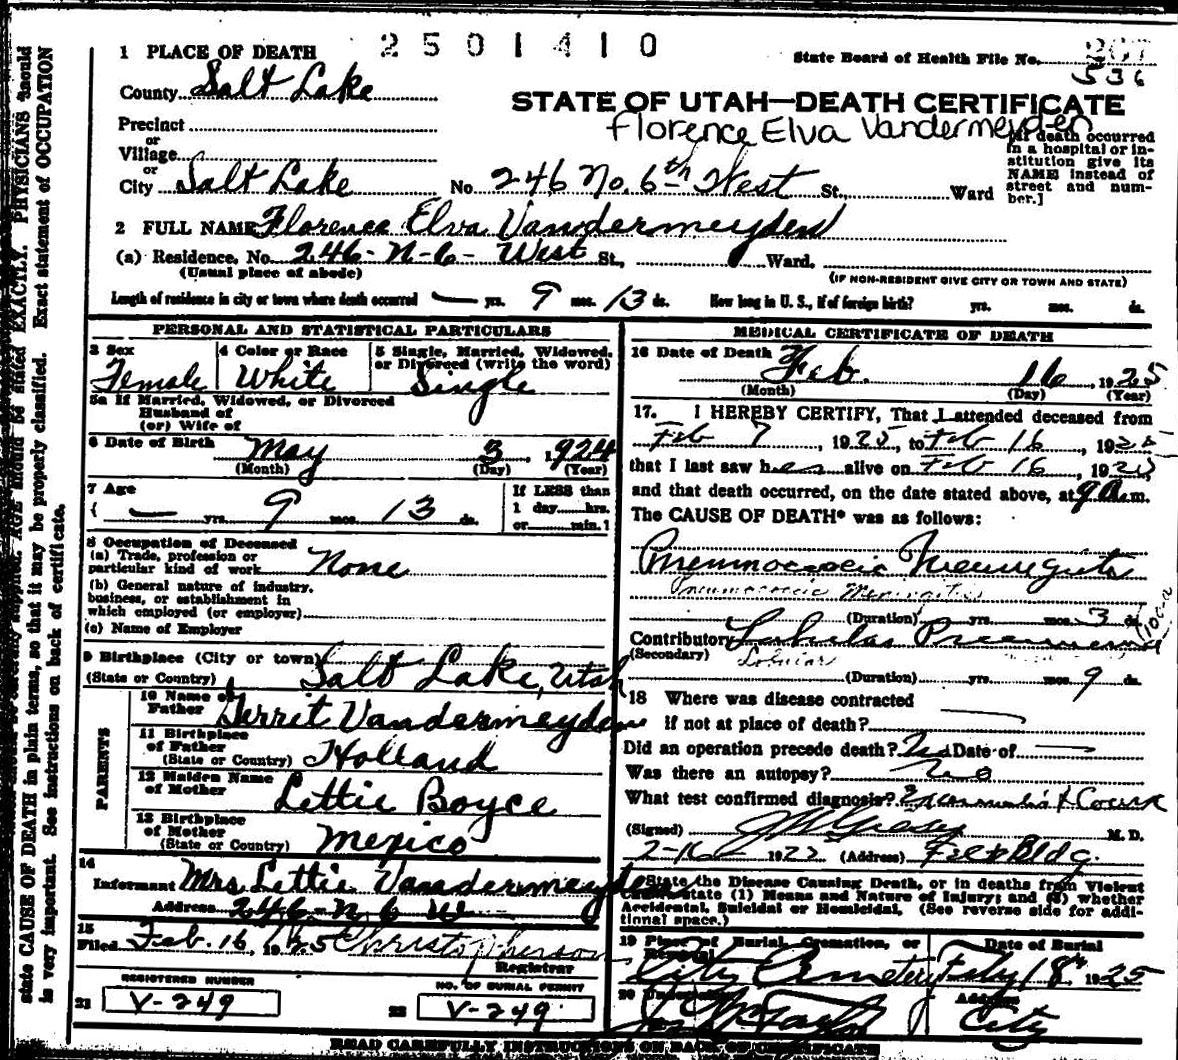 2501410
1 PLACE OF DEATH
State Board of Health File No. 267
536
County Salt Lake
STATE OF UTAH—DEATH CERTIFICATE
Florence Elva Vandermeyden
Precinct
or
Village
or
City Salt Lake No. 246 No. 6th West St., Ward
[If death occurred in a hospital or institution give its NAME instead of street and number.]
2 FULL NAME Florence Elva Vandermeyden
(a) Residence, No. 246-N-6- West St., Ward.
(Usual place of abode)
(IF NON-RESIDENT GIVE CITY OR TOWN AND STATE)
Length of residence in city or town where death occurred — yrs. 9 mos. 13 ds. How long in U. S., if of foreign birth? yrs. mos. ds.
PERSONAL AND STATISTICAL PARTICULARS
3 Sex
Female
4 Color or Race
White
5 Single, Married, Widowed, or Divorced (write the word)
Single
5a If Married, Widowed, or Divorced
Husband of
(or) Wife of
6 Date of Birth May 3, 1924
(Month) (Day) (Year)
7 Age
— yrs. 9 mos. 13 ds.
If LESS than
1 day hrs.
or min.
8 Occupation of Deceased
(a) Trade, profession or
particular kind of work None
(b) General nature of industry,
business, or establishment in
which employed (or employer)
(c) Name of Employer
9 Birthplace (City or town)
(State or Country) Salt Lake, Utah
PARENTS
10 Name of
Father Gerret Vandermeyden
11 Birthplace
of Father
(State or Country) Holland
12 Maiden Name
of Mother Lettie Boyce
13 Birthplace
of Mother
(State or Country) Mexico
14
Informant Mrs Lettie Vandermeyden
Address 246-N 6 W
15
Filed Feb. 16, 1925 Christopherson
Registrar
REGISTERED NUMBER
21 V-249
NO. OF BURIAL PERMIT
22 V-249
MEDICAL CERTIFICATE OF DEATH
16 Date of Death Feb. 16, 1925
(Month) (Day) (Year)
17. I HEREBY CERTIFY, That I attended deceased from
Feb 7, 1925, to Feb 16, 1925
that I last saw her alive on Feb 16, 1925,
and that death occurred, on the date stated above, at 9 a.m.
The CAUSE OF DEATH* was as follows:
Pneumococcic Meningitis
Pneumococcic Meningitis
(Duration) yrs. mos. 3 ds.
Contributory Lobular Pneumonia
(Secondary) Lobular
(Duration) yrs. mos. 9 ds.
18 Where was disease contracted
if not at place of death?
Did an operation precede death? No Date of —
Was there an autopsy? No
What test confirmed diagnosis? & Course
(Signed) M. D.
2-16 1922 (Address) Bldg.
*State the Disease Causing Death, or in deaths from Violent
Causes, state (1) Means and Nature of Injury; and (2) whether
Accidental, Suicidal or Homicidal. (See reverse side for additional space.)
19 Place of Burial, Cremation, or Removal
City Cemetery
Date of Burial
Feby 18th 1925
20 Undertaker
Address
City
READ CAREFULLY INSTRUCTIONS ON BACK OF CERTIFICATE
state CAUSE OF DEATH in plain terms, so that it may be properly classified. Exact statement of OCCUPATION
is very important. See instructions on back of certificate.